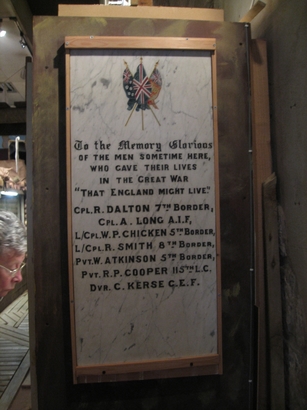 To the Memory Glorious
OF THE MEN SOMETIME HERE,
WHO GAVE THEIR LIVES
IN THE GREAT WAR
"THAT ENGLAND MIGHT LIVE"
CPL.R. DALTON 7TH BORDER,
CPL.A. LONG A.I.F,
L/CPL.W.P. CHICKEN 5TH BORDER,
L/CPL.R. SMITH 8TH BORDER,
PVT.W. ATKINSON 5TH BORDER,
PVT. R.P. COOPER 115TH L.C.
DVR. C. KERSE C.E.F.